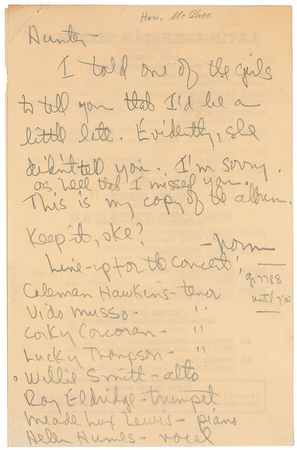 How. McGhee
Hunter -
I told one of the girls
to tell you that I'd be a
little late. Evidently, she
didn't tell you. I'm sorry
as hell that I missed you.
This is my copy of the album.
Keep it, oke?
- Norm
Line-up for the concert:
Coleman Hawkins - tenor
Vido Musso - "
Corky Corcoran - "
Lucky Thompson - "
Willie Smith - alto
Roy Eldridge - trumpet
Meade Lux Lewis - piano
Helen Humes - vocal
7788
until 7:00